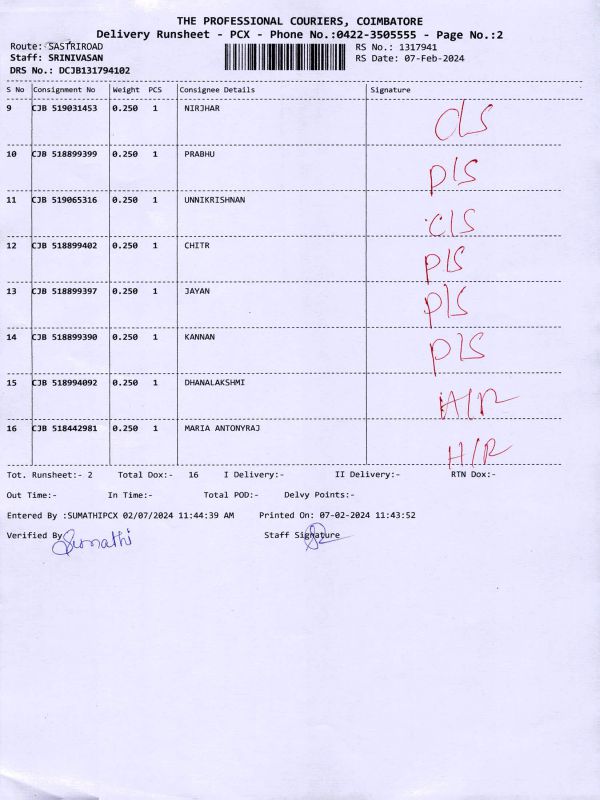 THE PROFESSIONAL COURIERS, COIMBATORE
Delivery Runsheet - PCX - Phone No.:0422-3505555 - Page No.:2
Route: SASTRIROAD RS No.: 1317941
Staff: SRINIVASAN RS Date: 07-Feb-2024
DRS No.: DCJB131794102
S No Consignment No Weight PCS Consignee Details Signature
9 CJB 519031453 0.250 1 NIRJHAR C/S
10 CJB 518899399 0.250 1 PRABHU P/S
11 CJB 519065316 0.250 1 UNNIKRISHNAN C/S
12 CJB 518899402 0.250 1 CHITR P/S
13 CJB 518899397 0.250 1 JAYAN P/S
14 CJB 518899390 0.250 1 KANNAN P/S
15 CJB 518994092 0.250 1 DHANALAKSHMI H/R
16 CJB 518442981 0.250 1 MARIA ANTONYRAJ H/R
Tot. Runsheet:- 2 Total Dox:- 16 I Delivery:- II Delivery:- RTN Dox:-
Out Time:- In Time:- Total POD:- Delvy Points:-
Entered By :SUMATHIPCX 02/07/2024 11:44:39 AM Printed On: 07-02-2024 11:43:52
Verified By Sumathi Staff Signature